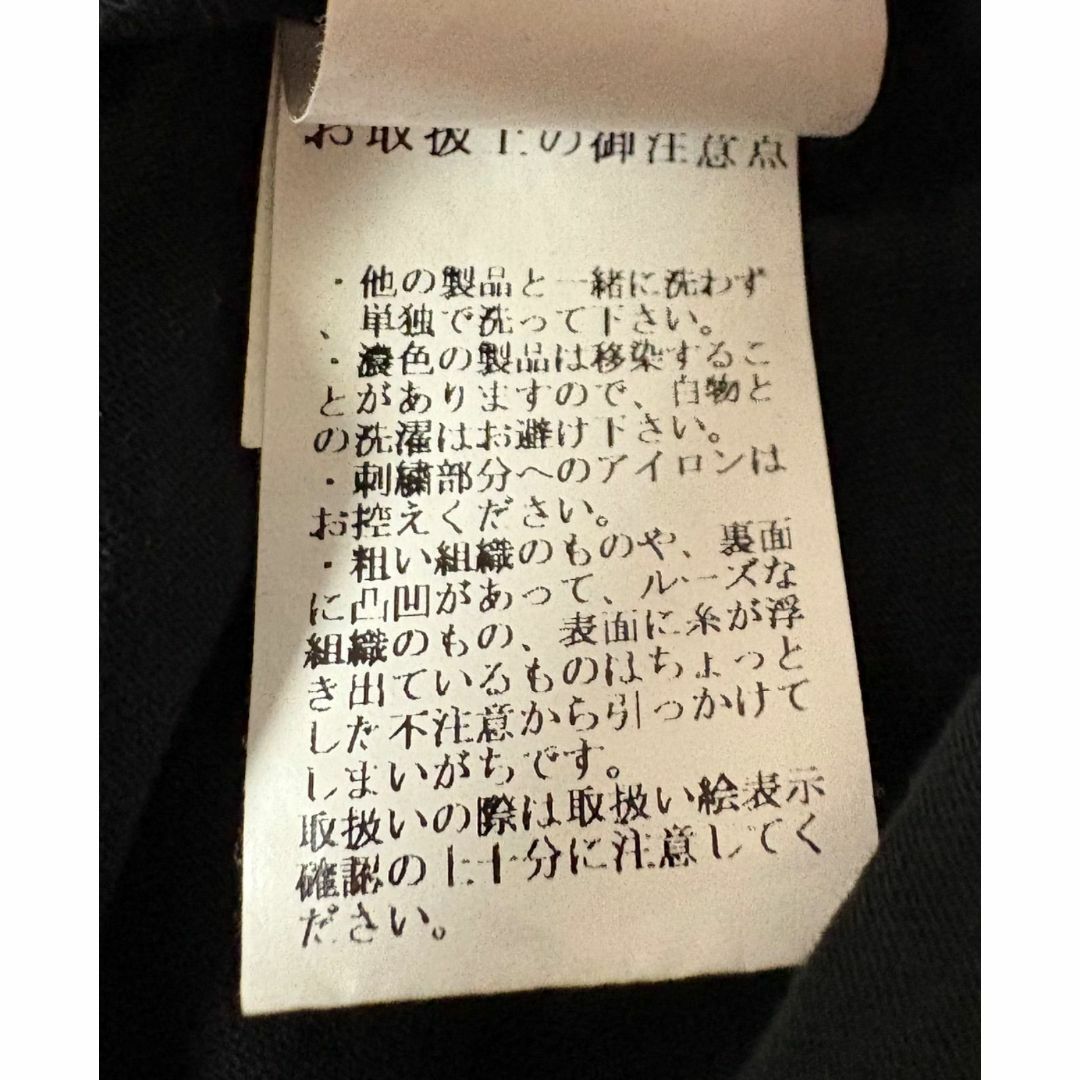 お取扱上の御注意点
・他の製品と一緒に洗わず
、単独で洗って下さい。
・濃色の製品は移染するこ
とがありますので、白物と
の洗濯はお避け下さい。
・刺繍部分へのアイロンは
お控えください。
・粗い組織のものや、裏面
に凸凹があって、ルーズな
組織のもの、表面に糸が浮
き出ているものはちょっと
した不注意から引っかけて
しまいがちです。
取扱いの際は取扱い絵表示
確認の上十分に注意してく
ださい。